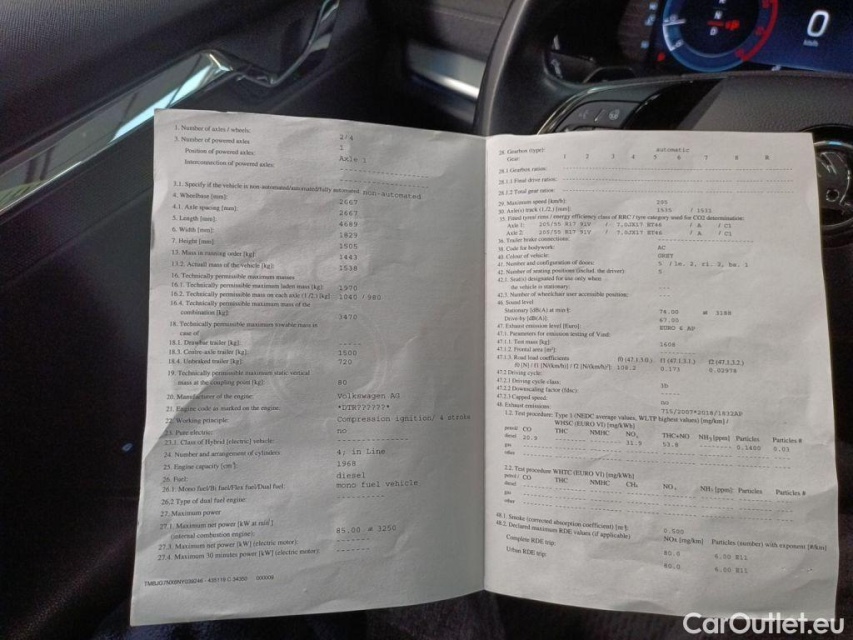 0
km/h
1. Number of axles / wheels: 2/4
3. Number of powered axles 1
Position of powered axles: Axle 1
Interconnection of powered axles: ------------
3.1. Specify if the vehicle is non-automated/automated/fully automated: non-automated
4. Wheelbase [mm]: 2667
4.1. Axle spacing [mm]: 2667
5. Length [mm]: 4689
6. Width [mm]: 1829
7. Height [mm]: 1505
13. Mass in running order [kg]: 1443
13.2. Actual mass of the vehicle [kg]: 1538
16. Technically permissible maximum masses
16.1. Technically permissible maximum laden mass [kg]: 1970
16.2. Technically permissible mass on each axle (1./2.) [kg]: 1040 / 980
16.4. Technically permissible maximum mass of the
combination [kg]: 3470
18. Technically permissible maximum towable mass in
case of
18.1. Drawbar trailer [kg]: ------
18.3. Centre-axle trailer [kg]: 1500
18.4. Unbraked trailer [kg]: 720
19. Technically permissible maximum static vertical
mass at the coupling point [kg]: 80
20. Manufacturer of the engine: Volkswagen AG
21. Engine code as marked on the engine: *DTR??????*
22. Working principle: Compression ignition/ 4 stroke
23. Pure electric: no
23.1. Class of Hybrid [electric] vehicle: ------------
24. Number and arrangement of cylinders: 4; in Line
25. Engine capacity [cm³]: 1968
26. Fuel: diesel
26.1. Mono fuel/Bi fuel/Flex fuel/Dual fuel: mono fuel vehicle
26.2 Type of dual fuel engine: --------
27. Maximum power
27.1. Maximum net power [kW at min-1]
(internal combustion engine): 85.00 / 3250
27.3. Maximum net power [kW] (electric motor): ------
27.4. Maximum 30 minutes power [kW] (electric motor): ------
28. Gearbox (type): automatic
Gear: 1 2 3 4 5 6 7 8 R
28.1 Gearbox ratios:
28.1.1 Final drive ratio:
28.1.2 Total gear ratios:
29. Maximum speed [km/h]: 205
30. Axle(s) track (1./2.) [mm]: 1535 / 1533
35. Fitted tyres/ rims / energy efficiency class of RRC / tyre category used for CO2 determination:
Axle 1: 205/55 R17 91V / 7,0JX17 ET46 / A / C1
Axle 2: 205/55 R17 91V / 7,0JX17 ET46 / A / C1
36. Trailer brake connections:
38. Code for bodywork: AC
40. Colour of vehicle: GREY
41. Number and configuration of doors: 5 / le. 2, ri. 2, ba. 1
42. Number of seating positions (includ. the driver): 5
42.1. Seat(s) designated for use only when
the vehicle is stationary: ---
42.3. Number of wheelchair user accessible position: ---
46. Sound level
Stationary [dB(A) at min-1]: 74.00 3188
Drive-by [dB(A)]: 67.00
47. Exhaust emission level [Euro]: EURO 6 AP
47.1. Parameters for emission testing of Vind:
47.1.1. Test mass [kg]: 1608
47.1.2. Frontal area [m²]:
47.1.3. Road load coefficients f0 (47.1.3.0.) f1 (47.1.3.1.) f2 (47.1.3.2.)
f0 [N] / f1 [N/(km/h)] / f2 [N/(km/h)²]: 109.2 0.173 0.02978
47.2 Driving cycle:
47.2.1 Driving cycle class: 3b
47.2.2 Downscaling factor (fdsc): ---
47.2.3 Capped speed: no
48. Exhaust emissions: 715/2007*2018/1832AP
1.2. Test procedure: Type 1 (NEDC average values, WLTP highest values) [mg/km] /
WHSC (EURO VI) [mg/kWh]
petrol/ CO THC NMHC NOx THC+NO NH3 [ppm] Particles Particles #
diesel 20.9 31.9 53.8 0.1400 0.03
gas
other
2.2. Test procedure WHTC (EURO VI) [mg/kWh]
petrol/ CO THC NMHC CH4 NOx NH3 [ppm] Particles Particles #
diesel
gas
other
48.1. Smoke (corrected absorption coefficient) [m-1]: 0.500
48.2. Declared maximum RDE values (if applicable) NOx [mg/km] Particles (number) with exponent [#/km]
Complete RDE trip: 80.0 6.00 E11
Urban RDE trip: 80.0 6.00 E11
CarOutlet.eu